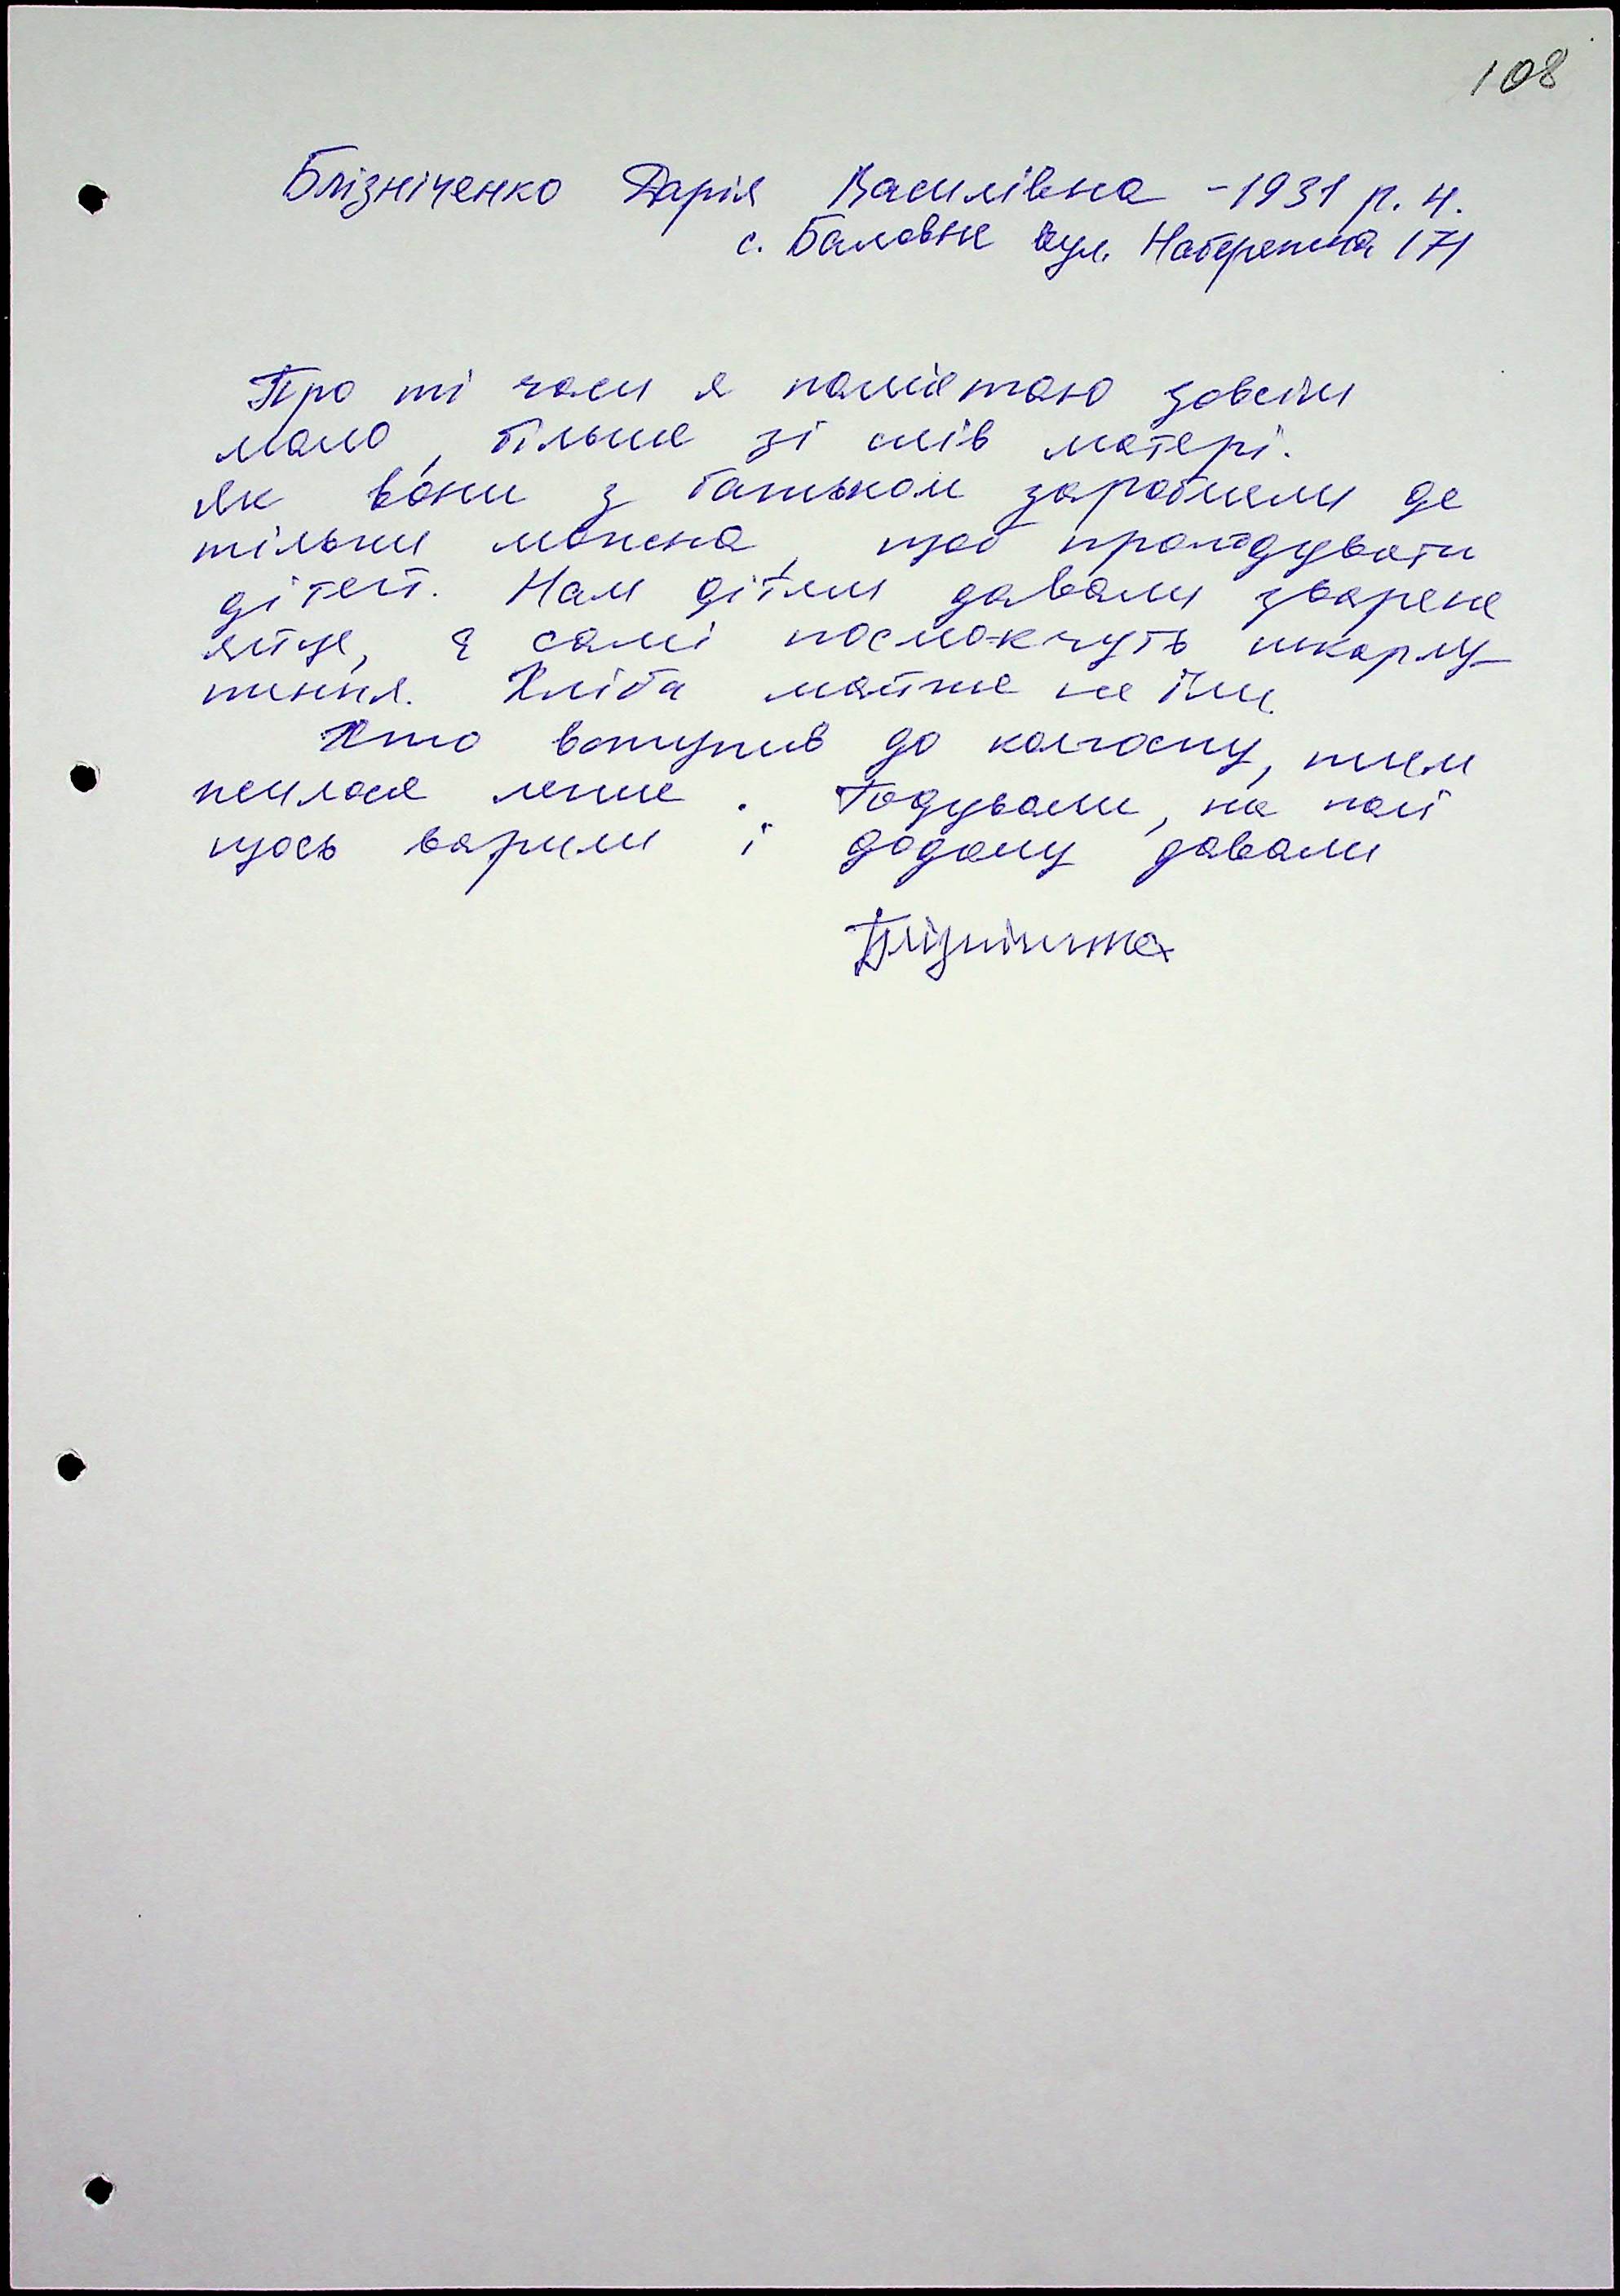 108
Блізніченко Дарія Василівна - 1931 р. н.
с. Баловне вул. Набережна 171
Про ті часи я памїятаю зовсім
мало, більше зі слів матері.
Як вони з батьком заробляли де
тільки можна, щоб прогодувати
дітей. Нам дітям давали зварене
яйце, а самі посмокчуть шкарлу-
пиння. Хліба майже не їли.
Хто вступив до колгоспу, тим
жилося легше. Годували, на полі
щось варили і додому давали
Блізніченко